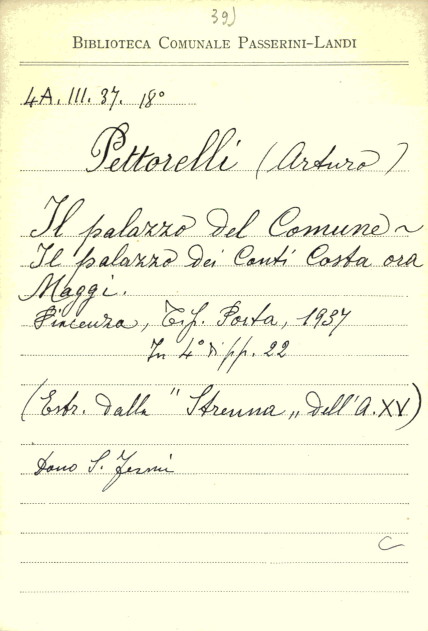 39)
BIBLIOTECA COMUNALE PASSERINI-LANDI
4A. III. 37. 18°
Pettorelli (Arturo)
Il palazzo del Comune ~
Il palazzo dei Conti Costa ora
Maggi.
Piacenza, Tip. Porta, 1937
In 4° di pp. 22
(Estr. dalla "Strenna„ dell'A. XV)
Dono S. Fermi
C